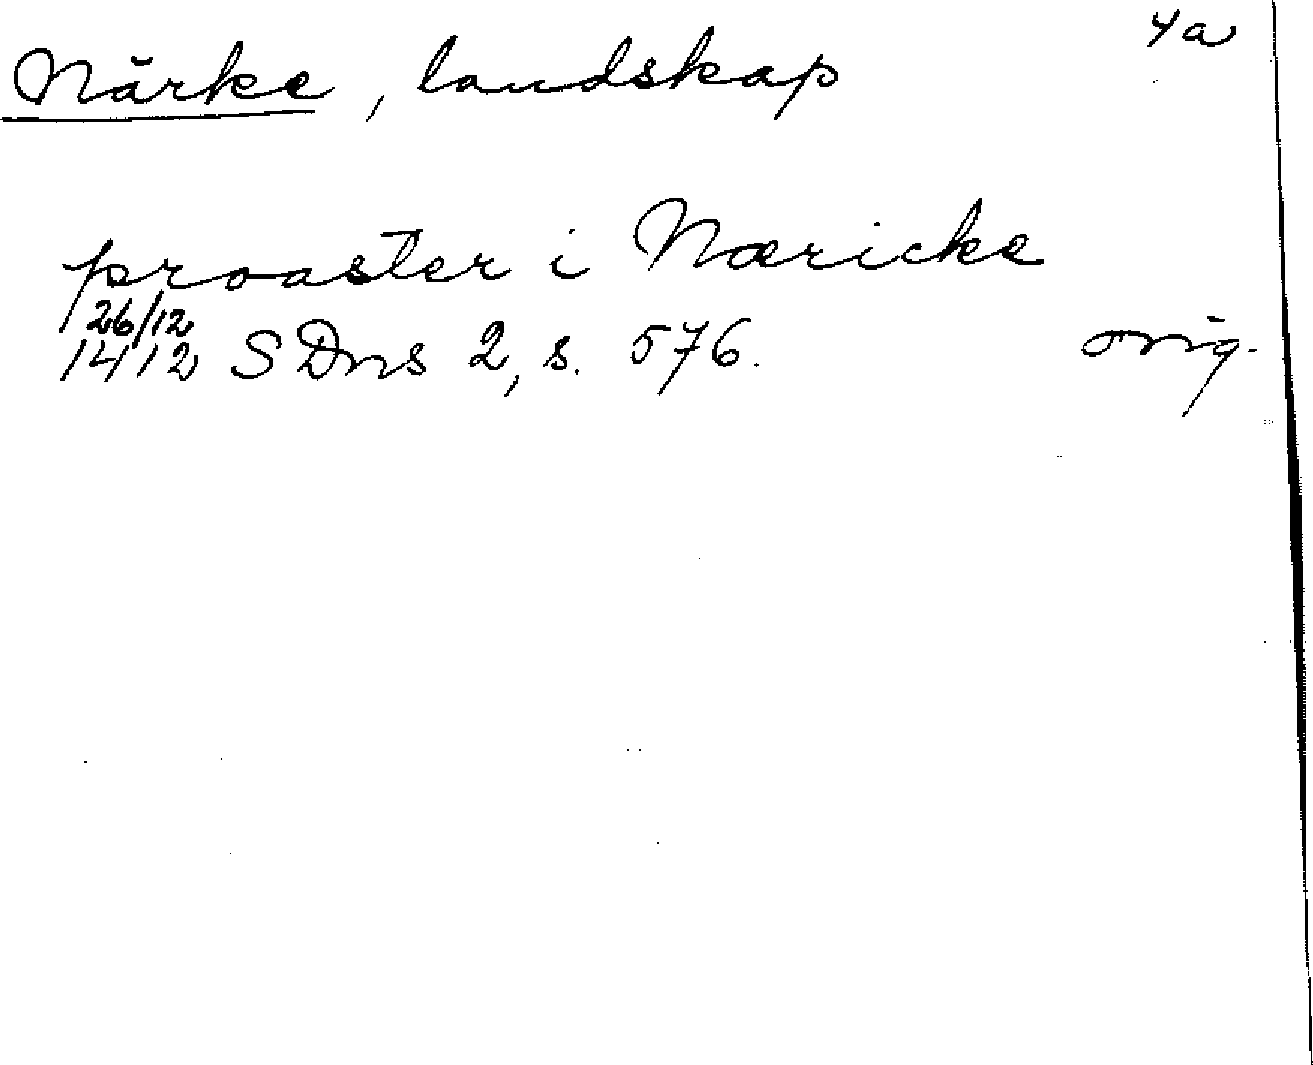 4a
Närke, landskap
proaster i Næricke
26/12
1412 SDns 2, s. 576. orig.